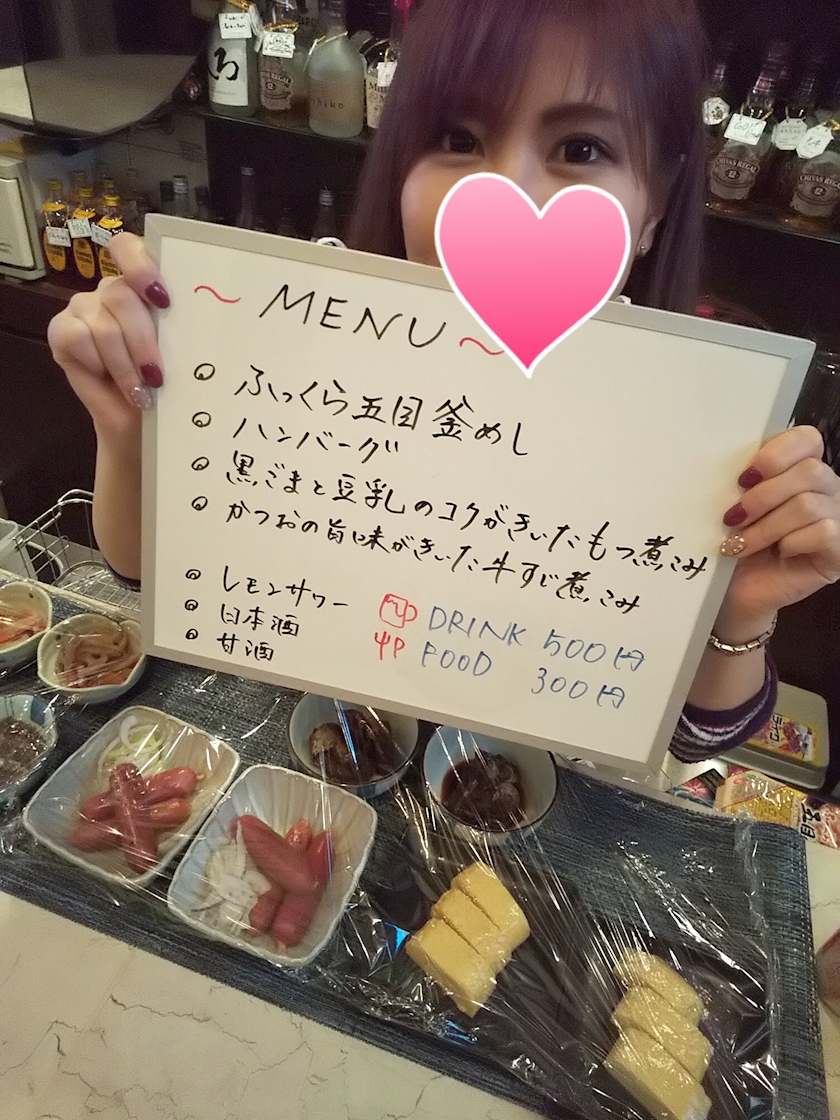 ～ MENU ～
ふっくら五目釜めし
ハンバーグ
黒ごまと豆乳のコクがきいたもつ煮こみ
かつおの旨味がきいた牛すじ煮こみ
レモンサワー
日本酒
甘酒
DRINK 500円
FOOD 300円
CHIVAS REGAL
12
CHIVAS REGAL
12